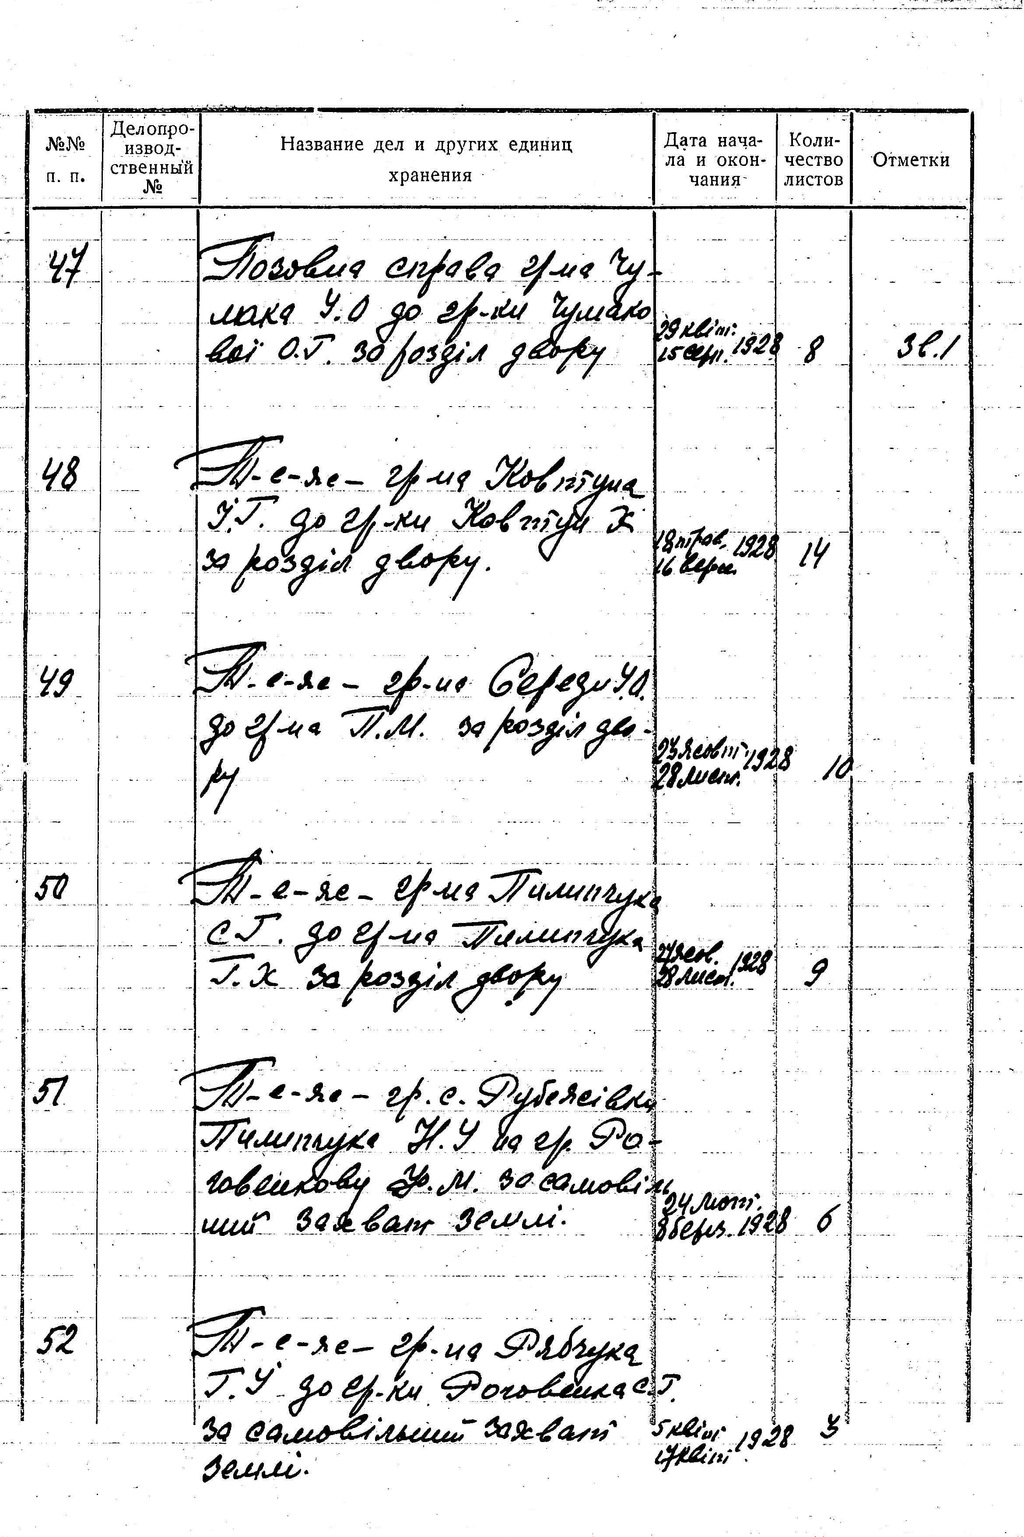 №№ п. п.
Делопро-
извод-
ственный
№
Название дел и других единиц
хранения
Дата нача-
ла и окон-
чания
Коли-
чество
листов
Отметки
47
Позовна справа гр-на Чу-
мака У.О до гр-ки Чумако
вої О.Г. за розділ двору
29 квіт.
15 серп. 1928
8
Зв.1
48
Т-е-же- гр-на Ковтуна
У.Г. до гр-ки Ковтун Х
за розділ двору.
18 трав. 1928
16 верес.
14
49
Т-е-же- гр-на Середи У.О.
до гр-на П.М. за розділ дво-
ру
23 жовт. 1928
28 лист.
10
50
Т-е-же- гр-на Пилипчука
С.Г. до гр-на Пилипчука
Г.Х за розділ двору
27 жов. 1928
28 лист.
9
51
Т-е-же- гр. с. Рубежівки
Пилипчука Н.У на гр. Ро-
говенкову М. за самовіль
ний захват землі.
24 лют.
8 берез. 1928
6
52
Т-е-же- гр-на Рябчука
Г.У до гр-ки Роговенка С.Г.
за самовільний захват
землі.
5 квіт
17 квіт 1928
3